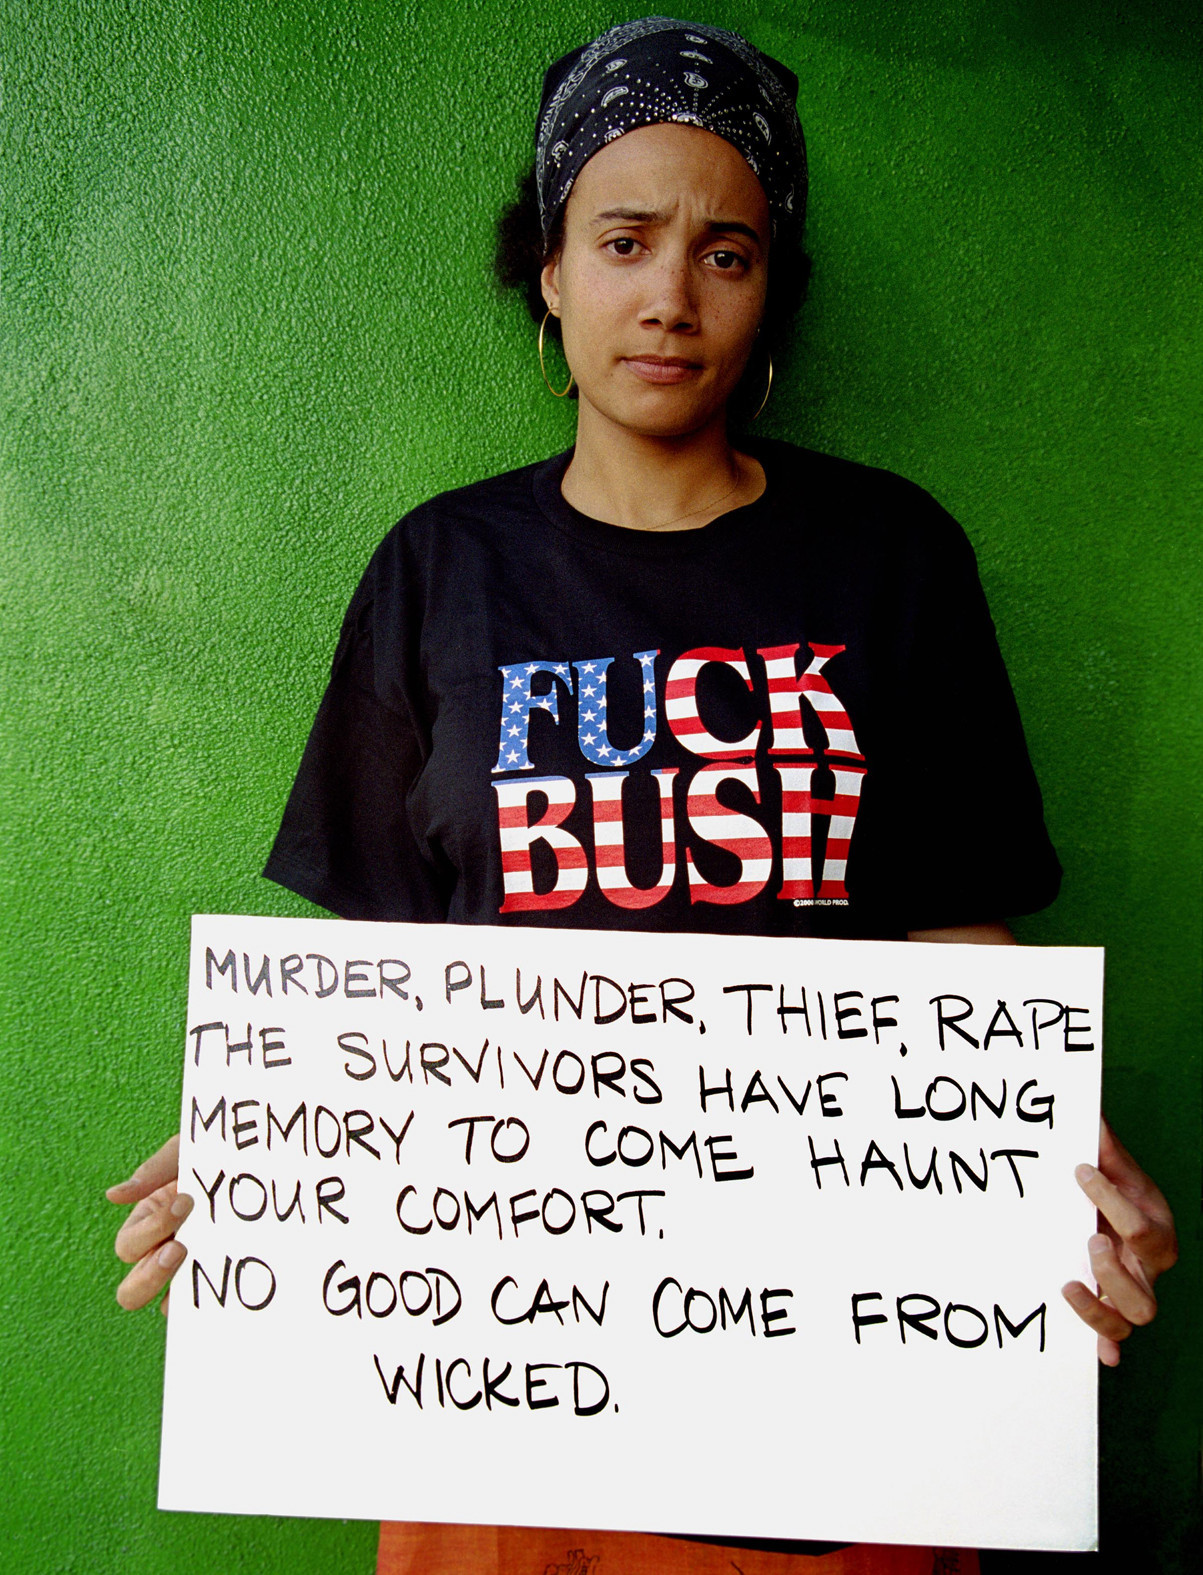 FUCK
BUSH
©2000 WORLD PROD.
MURDER, PLUNDER, THIEF, RAPE
THE SURVIVORS HAVE LONG
MEMORY TO COME HAUNT
YOUR COMFORT.
NO GOOD CAN COME FROM
WICKED.